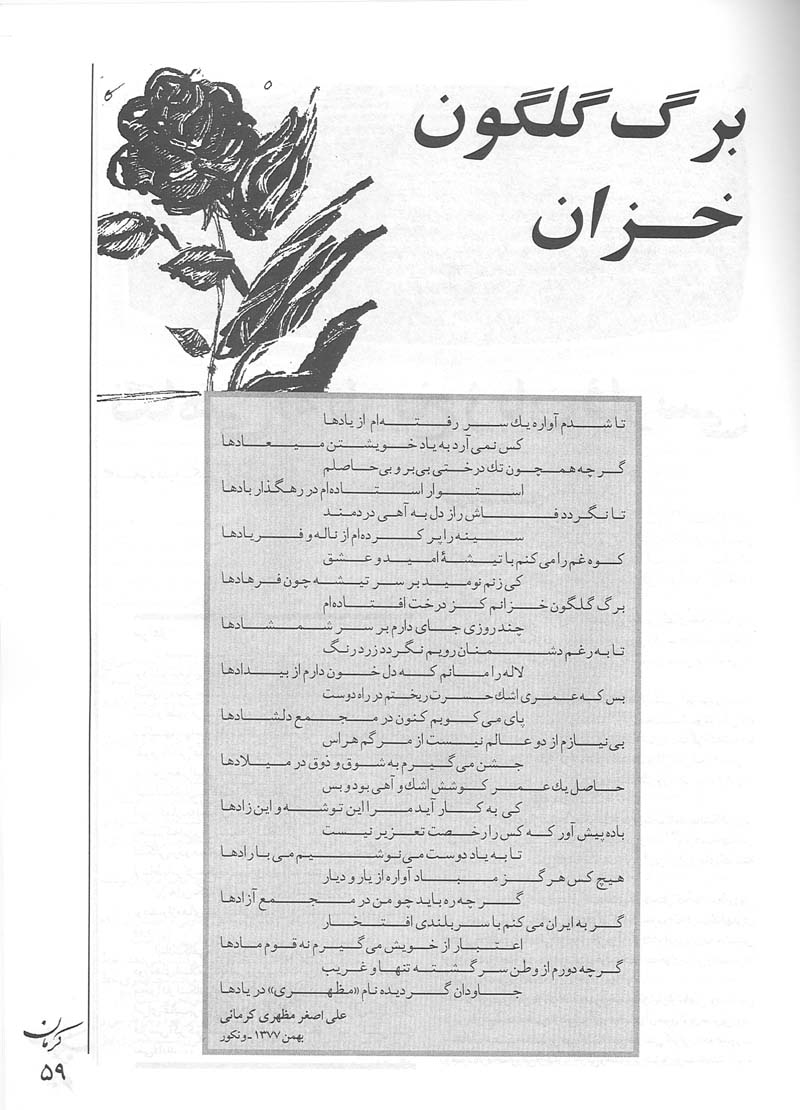 برگ گلگون
خزان
تا شدم آواره یك سر رفته‌ام از یادها
کس نمی آرد به یاد خویشتن میعادها
گرچه همچون تك درختی بی‌بر و بی‌حاصلم
استوار استاده‌ام در رهگذار بادها
تا نگردد فاش راز دل به آهی دردمند
سینه را پر کرده‌ام از ناله و فریادها
کوه غم را می کنم با تیشهٔ امید و عشق
کی زنم نومید بر سر تیشه چون فرهادها
برگ گلگون خزانم کز درخت افتاده‌ام
چند روزی جای دارم بر سر شمشادها
تا به رغم دشمنان رویم نگردد زرد رنگ
لاله را مانم که دل خون دارم از بیدادها
بس که عمری اشك حسرت ریختم در راه دوست
پای می کوبم کنون در مجمع دلشادها
بی نیازم از دو عالم نیست از مرگم هراس
جشن می گیرم به شوق و ذوق در میلادها
حاصل یك عمر کوشش اشك و آهی بود و بس
کی به کار آید مرا این توشه و این زادها
باده پیش آور که کس را رخصت تعزیر نیست
تا به یاد دوست می نوشیم می با رادها
هیچ کس هرگز مباد آواره از یار و دیار
گرچه ره باید چو من در مجمع آزادها
گر به ایران می کنم با سربلندی افتخار
اعتبار از خویش می گیرم نه قوم مادها
گرچه دورم از وطن سرگشته تنها و غریب
جاودان گردیده نام «مظهری» در یادها
علی اصغر مظهری کرمانی
بهمن ۱۳۷۷ - ونکور
کرمان
۵۹